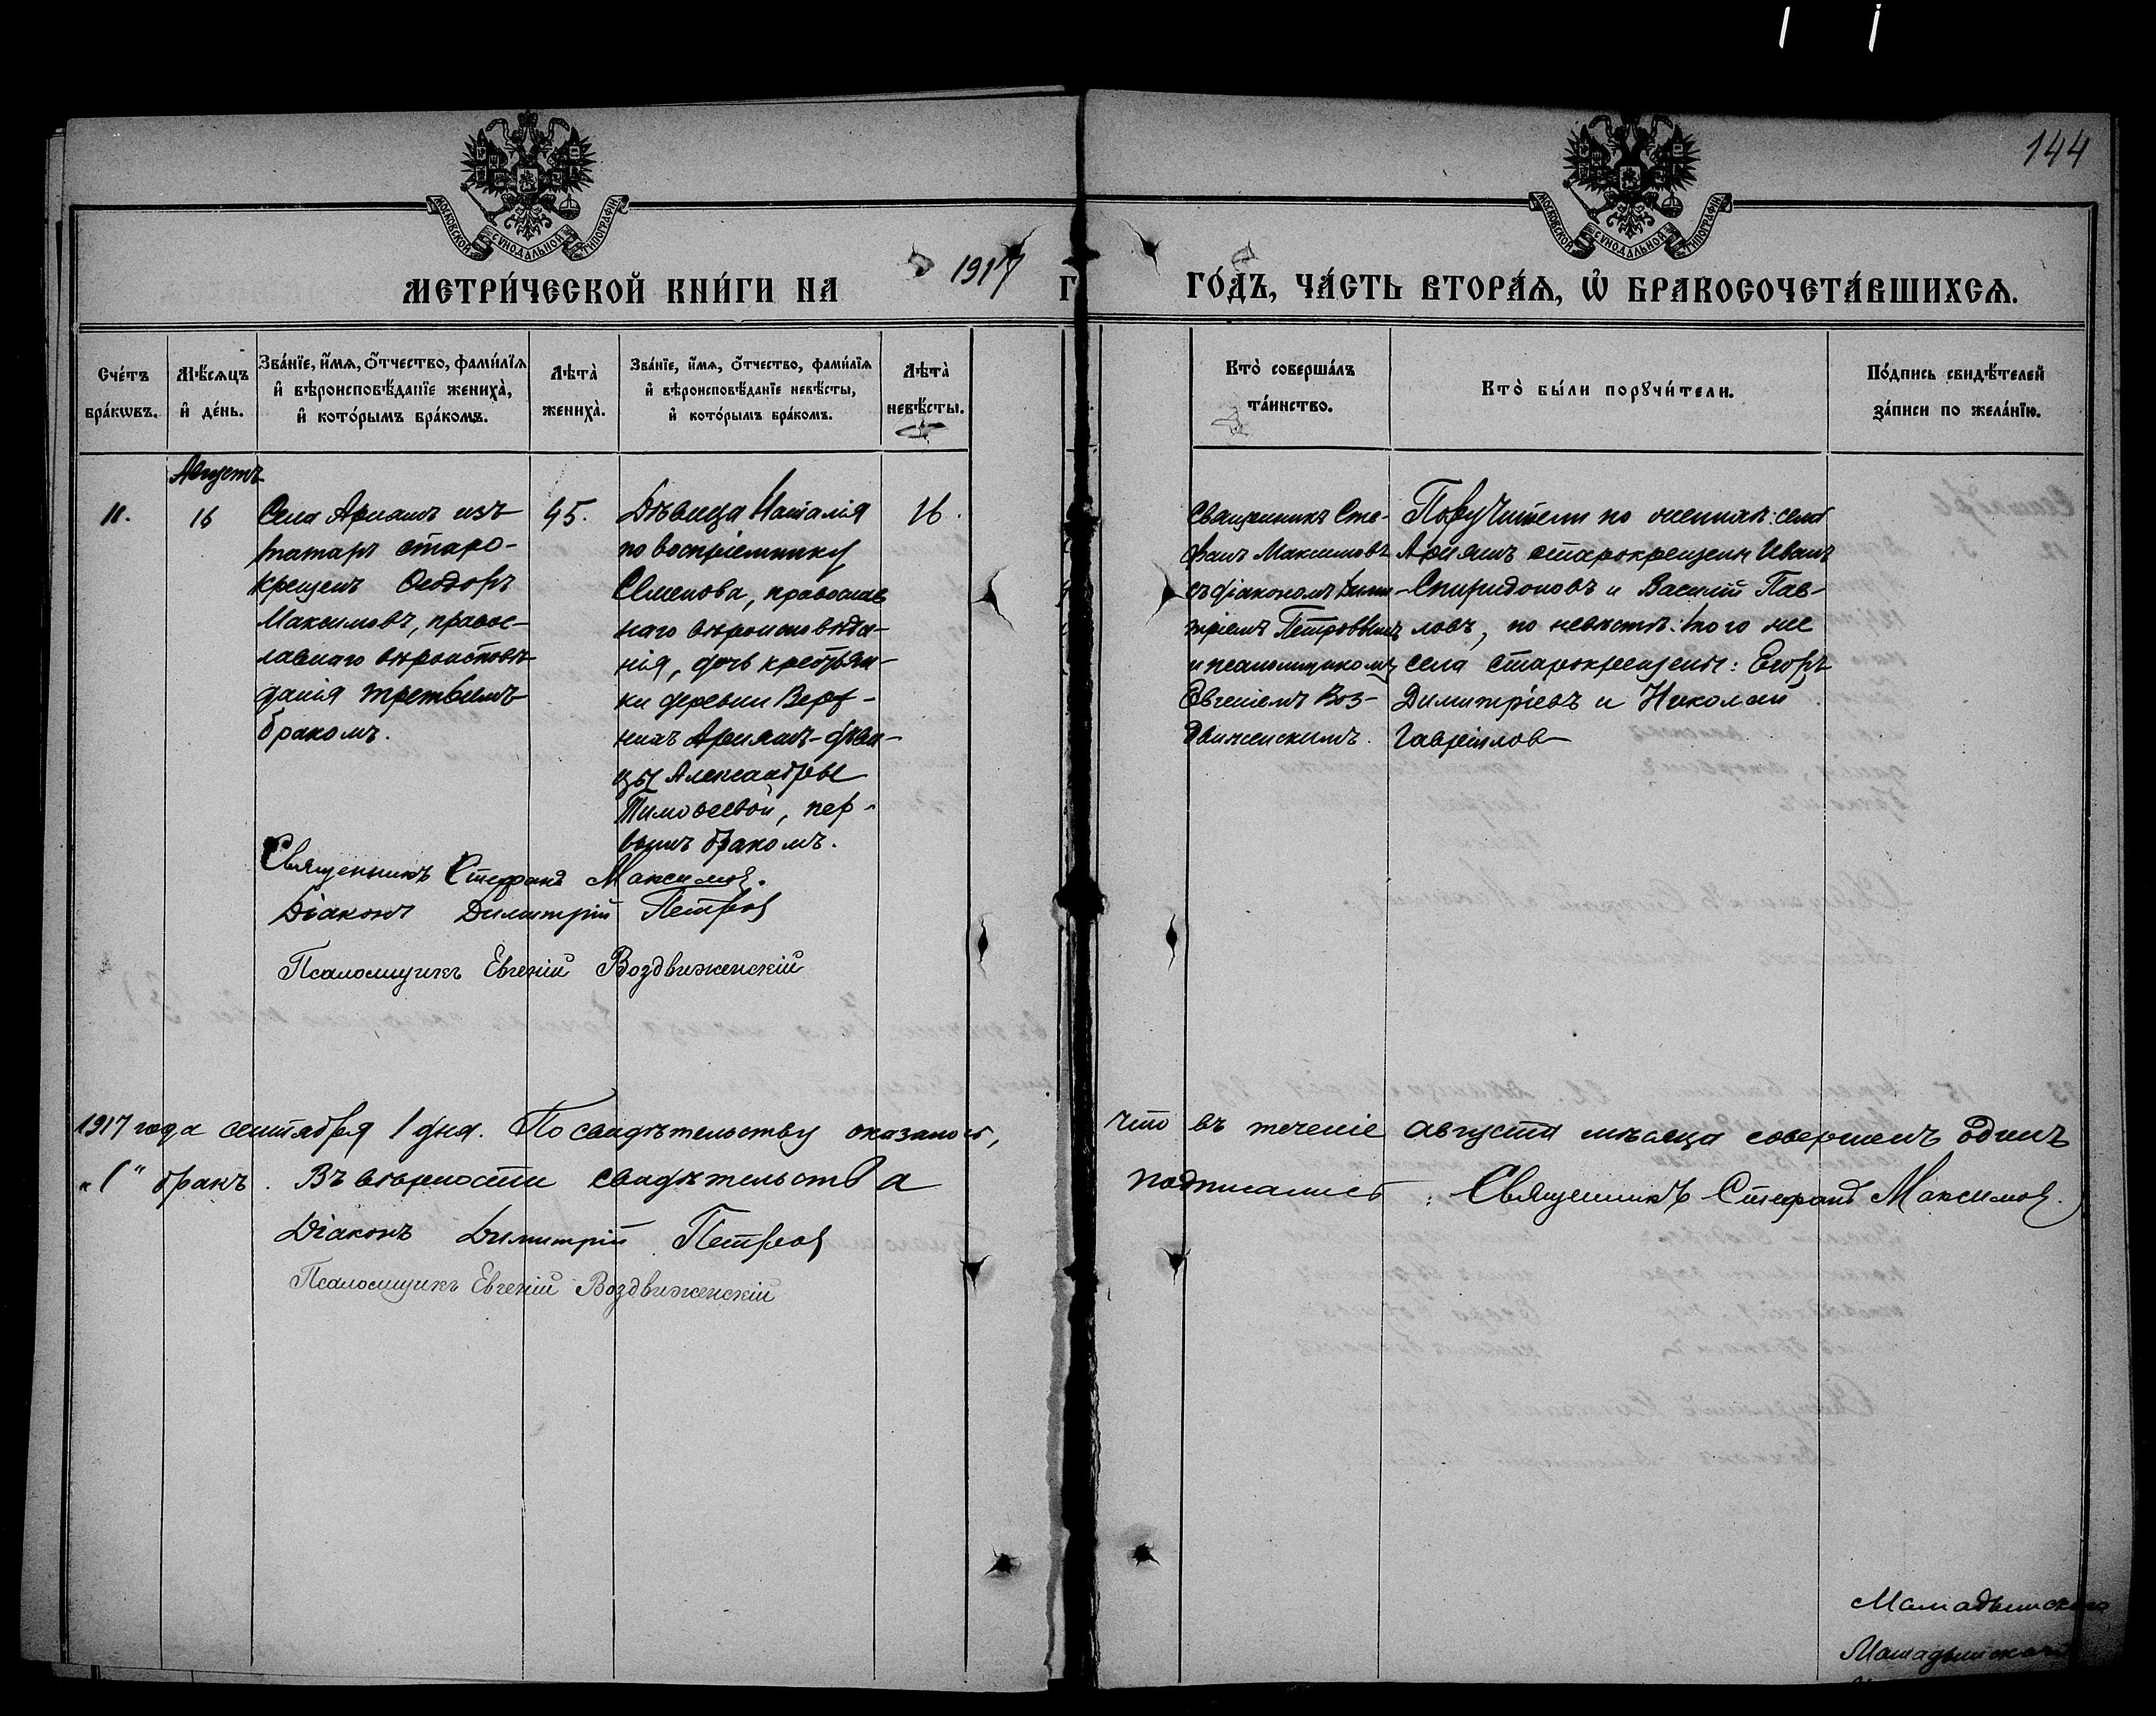 144
МОСКОВСКОЙ СѴНОДАЛЬНОЙ ТИПОГРАФІИ
МОСКОВСКОЙ СѴНОДАЛЬНОЙ ТИПОГРАФІИ
МЕТРИ́ЧЕСКОЙ КНИ́ГИ НА 1917 Г
ГО́ДЪ, ЧА́СТЬ ВТОРА́Я, Ѡ БРАКОСОЧЕТА́ВШИХСЯ.
Сче́тъ
бра́кѡвъ.
Мѣ́сѧцъ
и҆ де́нь.
Зва́нїе, и҆́мѧ, ѻ҆́тчество, фами́лїѧ
и҆ вѣроисповѣ́данїе жениха̀,
и҆ кото́рымъ бра́комъ.
Лѣта̀
жениха̀.
Зва́нїе, и҆́мѧ, ѻ҆́тчество, фами́лїѧ
и҆ вѣроисповѣ́данїе невѣ́сты,
и҆ кото́рымъ бра́комъ.
Лѣта̀
невѣ́сты.
Кто̀ соверша́лъ
та́инство.
Кто̀ бы́ли порꙋчи́тели.
По́дпись свидѣ́телей
за́писи по жела́нїю.
Августъ
11.
16
Села Арнашъ изъ
татаръ старо-
крещенъ Ѳеодоръ
Максимовъ, правос-
лавнаго вѣроисповѣ
данія третьимъ
бракомъ.
45.
Дѣвица Наталія
по воспріемнику
Семенова, православ
наго вѣроисповѣда-
нія, дочь крестьян-
ки деревни Верх-
нихъ Арняшъ-дѣви-
цы Александры
Тимоѳеевой, пер-
вымъ бракомъ.
16.
Священникъ Сте-
фанъ Максимовъ
съ діакономъ Дими-
тріемъ Петровымъ
и псаломщикомъ
Евгеніемъ Воз-
движенскимъ.
Поручители по женихѣ: села
Арняшъ старокрещены Иванъ
Спиридоновъ и Василій Пав-
ловъ, по невѣстѣ: того же
села старокрещены: Егоръ
Димитріевъ и Николай
Гавріиловъ
Священникъ Стефанъ Максимов.
Діаконъ Димитрій Петров
Псаломщикъ Евгеній Воздвиженскій
1917 года сентября 1 дня. По свидѣтельству оказалось, что въ теченіе августа мѣсяца совершенъ одинъ
„1" бракъ. Въ вѣрности свидѣтельства подписались: Священникъ Стефанъ Максимов.
Діаконъ Димитрій Петров
Псаломщикъ Евгеній Воздвиженскій
Мамадышскаго
Мамадышскаго